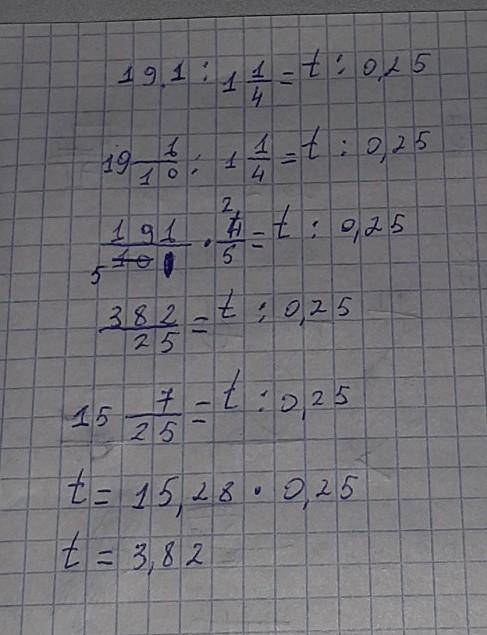 19,1 : 1 1/4 = t : 0,25
19 1/10 : 1 1/4 = t : 0,25
191/10 5 · 4/5 2 = t : 0,25
382/25 = t : 0,25
15 7/25 = t : 0,25
t = 15,28 · 0,25
t = 3,82